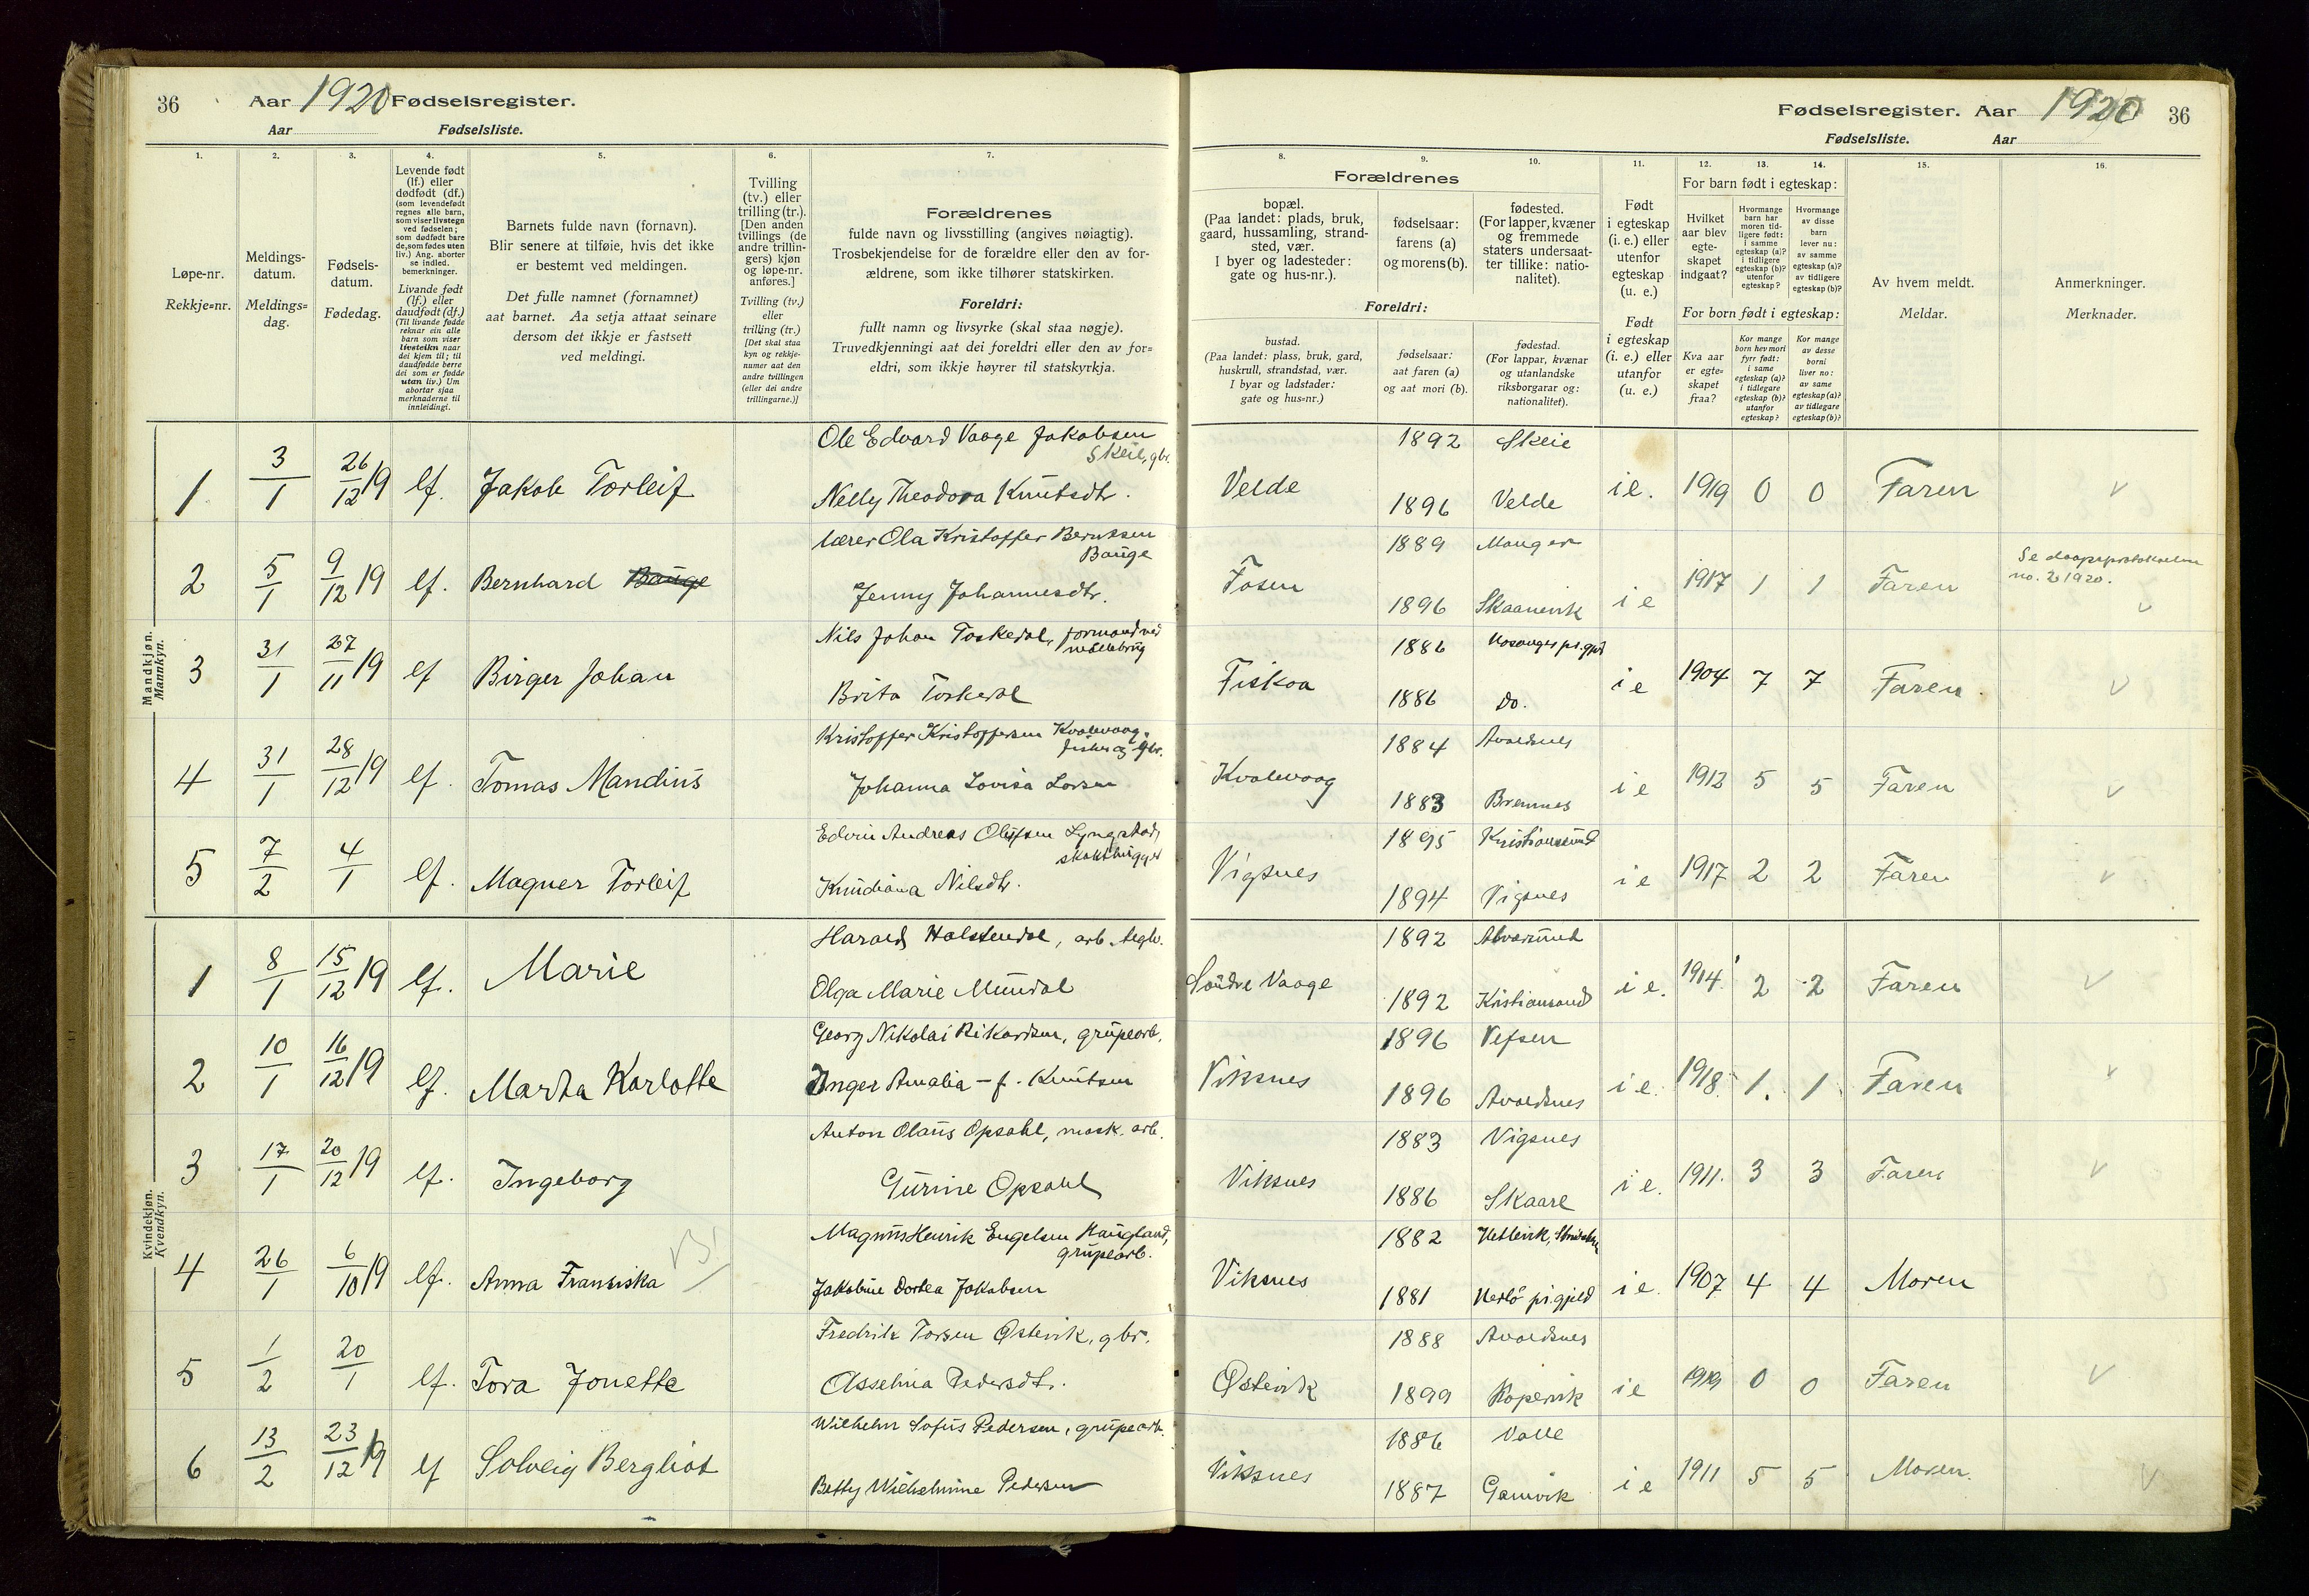 36 Aar 1920 Fødselsregister.
Aar Fødselsliste.
Fødselsregister. Aar 1920 36
Fødselsliste. Aar
1. 2. 3. 4. 5. 6. 7.
Løpe-nr.
Rekkje=nr.
Meldings-
datum.
Meldings=
dag.
Fødsels-
datum.
Fødedag.
Levende født
(lf.) eller
dødfødt (df.)
(som levendefødt
regnes alle barn,
som viser livstegn
ved fødselen;
som dødfødt bare
de, som fødes uten
liv.) Ang. aborter
se indled.
bemerkninger.
Livande født
(lf.) eller
daudfødt (df.)
(Til livande fødde
reknar ein alle
barn som viser
livsteikn naar
dei kjem til; til
daudfødde berre
dei som er fødde
utan liv.) Um
abortar sjaa
merknaderne til
innleidingi.
Barnets fulde navn (fornavn).
Blir senere at tilføie, hvis det ikke
er bestemt ved meldingen.
Det fulle namnet (fornamnet)
aat barnet. Aa setja attaat seinare
dersom det ikkje er fastsett
ved meldingi.
Tvilling
(tv.) eller
trilling (tr.).
[Den anden
tvillings (de
andre trillin-
gers) kjøn
og løpe-nr.
anføres.]
Tvilling (tv.)
eller
trilling (tr.)
[Det skal staa
kyn og rekkje-
numer aat den
andre tvillingen
(eller dei andre
trillingarne.)]
Forældrenes
fulde navn og livsstilling (angives nøiagtig).
Trosbekjendelse for de forældre eller den av for-
ældrene, som ikke tilhører statskirken.
Foreldri:
fullt namn og livsyrke (skal staa nøgje).
Truvedkjenningi aat dei foreldri eller den av for=
eldri, som ikkje høyrer til statskyrkja.
8. 9. 10. 11. 12. 13. 14. 15. 16.
Forældrenes
bopæl.
(Paa landet: plads, bruk,
gaard, hussamling, strand-
sted, vær.
I byer og ladesteder:
gate og hus-nr.).
fødselsaar:
farens (a)
og morens (b).
fødested.
(For lapper, kvæner
og fremmede
staters undersaat-
ter tillike: natio-
nalitet).
Foreldri:
bustad.
(Paa landet: plass, bruk, gard,
huskrull, strandstad, vær.
I byar og ladstader:
gate og hus=nr.)
fødselsaar:
aat faren (a)
og aat mori (b).
fødestad.
(For lappar, kvænar
og utanlandske
riksborgarar og:
nationalitet).
Født
i egteskap
(i. e.) eller
utenfor
egteskap
(u. e.)
Født
i egteskap
(i. e.) eller
utanfor
(u. e.)
For barn født i egteskap:
Hvilket
aar blev
egte-
skapet
indgaat?
Hvormange
barn har
moren tid-
ligere født:
i samme
egteskap (a)?
i tidligere
egteskap (b)?
utenfor
egteskap?
Hvormange
av disse
barn
lever nu:
av samme
egteskap (a)?
av tidligere
egteskap (b)?
For born født i egteskap:
Kva aar
er egte=
skapet
fraa?
Kor mange
born hev mori
fyrr født:
i same
egteskap (a)?
i tidlegare
egteskap (b)?
utanfor
egteskap?
Kor mange
av desse
borni
liver no:
av same
egteskap (a)?
av tidlegare
egteskap (b)?
Av hvem meldt.
Meldar.
Anmerkninger.
Merknader.
Mandkjøn.
Mannkyn.
1 3/1 26/12 19 lf. Jakob Torleif Ole Edvard Vaage Jakobsen
Skeie, gbr.
Nelly Theodora Knutsdtr.
Velde 1892 Skeie 1896 Velde i e. 1919 0 0 Faren
2 5/1 9/12 19 lf. Bernhard Bauge lærer Ola Kristoffer Berntsen
Bauge
Jenny Johannesdtr.
Fosen 1889 Manger 1896 Skaanevik i e 1917 1 1 Faren Se daapsprotokollen
no. 2 1920.
3 31/1 27/11 19 lf Birger Johan Nils Johan Toskedal, formand ved
Brita Toskedal
Fiskaa 1886 Hosanger pr.gjd 1886 do. i e 1904 7 7 Faren.
4 31/1 28/12 19 lf. Tomas Mandius Kristoffer Kristoffersen Kvalevaag,
fisker og gbr.
Johanna Lovisa Larsen
Kvalevaag 1884 Avaldsnes 1883 Bremnes i e 1912 5 5 Faren
5 7/2 4/1 lf. Magner Torleif Edvin Andreas Olufsen Lyngstad,
Knudiana Nilsdtr.
Vigsnes 1895 Kristiansund 1894 Vigsnes i e 1917 2 2 Faren
Kvindekjøn.
Kvendkyn.
1 8/1 15/12 19 lf. Marie Harald Halstendal, arb.
Olga Marie Mundal
Söndre Vaage 1892 Alversund 1892 Kristiansand i e. 1914 2 2 Faren
2 10/1 16/12 19 lf. Marta Karlotte Georg Nikolai Rikardsen, grupearb.
Inger Amalia – f. Knutsen
Viksnes 1896 Vefsen 1896 Avaldsnes i e. 1918 1. 1 Faren
3 17/1 20/12 19 lf. Ingeborg Anton Olaus Opsahl, mask. arb.
Gurine Opsahl
Viksnes 1883 Vigsnes 1886 Skaare i e. 1911. 3 3 Faren
4 26/1 6/10 19 lf. Anna Fransiska Magnus Henrik Engelsen Haugland,
grupearb.
Jakobine Dortea Jakobsen
Viksnes 1882 1881 Herlö pr.gjeld i e. 1907 4 4 Moren
5 1/2 20/1 lf. Tora Jonette Fredrik Torsen Østevik, gbr.
Asselina Pedersdtr.
Østevik 1888 Avaldsnes 1899 Kopervik i e 1919 0 0 Faren
6 13/2 23/12 19 lf Solveig Bergliot Wilhelm Sofus Pedersen, grupearb.
Betty Wilhelmine Pedersen
Viksnes 1886 Valle 1887 Gamvik i e 1911 5 5 Moren.